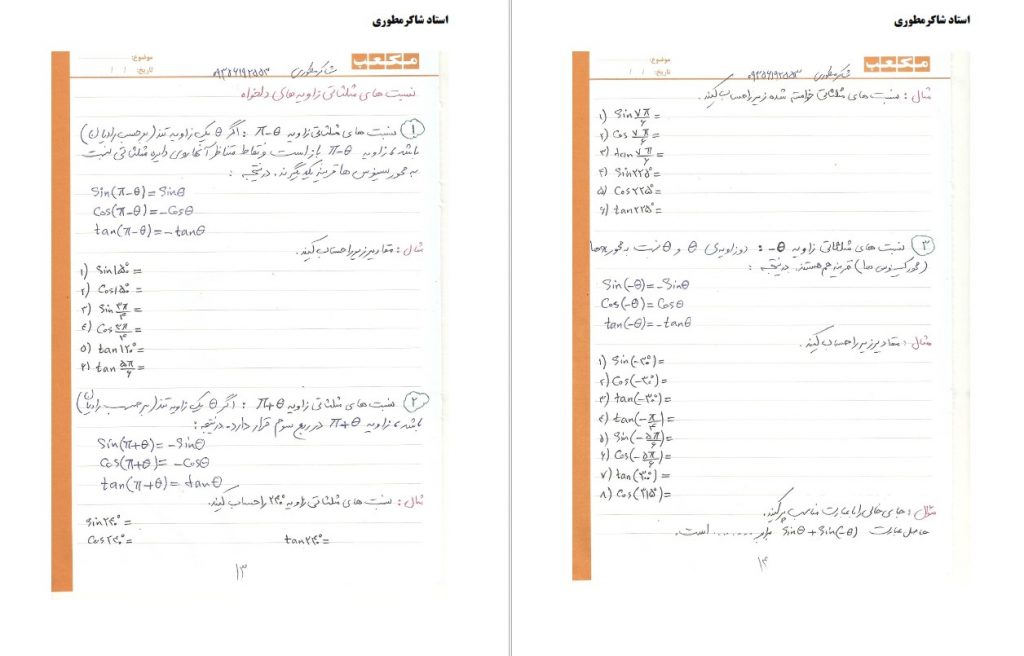 استاد شاکر مطوری
مکعب
موضوع:
تاریخ: / /
شاکر مطوری ۰۹۳۵۶۱۹۲۵۵۳
نسبت های مثلثاتی زاویه های دلخواه
۱ نسبت های مثلثاتی زاویه π-θ : اگر θ یک زاویه تند (برحسب رادیان)
باشد، زاویه π-θ باز است و نقاط متناظر آنها روی دایره مثلثاتی نسبت
به محور سینوس ها قرینه یکدیگرند. درنتیجه :
Sin(π-θ)=Sinθ
Cos(π-θ)=-Cosθ
tan(π-θ)=-tanθ
مثال : مقادیر زیر را حساب کنید.
۱) Sin۱۵۰°=
۲) Cos۱۵۰°=
۳) Sin ۳π/۴ =
۴) Cos ۳π/۴ =
۵) tan۱۲۰°=
۶) tan ۵π/۶ =
۲ نسبت های مثلثاتی زاویه π+θ : اگر θ یک زاویه تند (برحسب رادیان)
باشد، زاویه π+θ در ربع سوم قرار دارد. درنتیجه :
Sin(π+θ)= -Sinθ
Cos(π+θ)= -Cosθ
tan(π+θ)= tanθ
مثال : نسبت های مثلثاتی زاویه ۲۴۰° را حساب کنید.
Sin۲۴۰°=
Cos۲۴۰°= tan۲۴۰°=
۱۳
استاد شاکر مطوری
مکعب
موضوع:
تاریخ: / /
شاکر مطوری ۰۹۳۵۶۱۹۲۵۵۳
مثال : نسبت های مثلثاتی خواسته شده زیر را حساب کنید.
۱) Sin ۷π/۶ =
۲) Cos ۷π/۶ =
۳) tan ۷π/۶ =
۴) Sin۲۲۵°=
۵) Cos۲۲۵°=
۶) tan۲۲۵°=
۳ نسبت های مثلثاتی زاویه -θ : دو زاویه‌ی θ و -θ نسبت به محور xها
(محور کسینوس ها) قرینه هم هستند. درنتیجه :
Sin(-θ)=-Sinθ
Cos(-θ)= Cosθ
tan(-θ)=-tanθ
مثال : مقادیر زیر را حساب کنید.
۱) Sin(-۳۰°)=
۲) Cos(-۳۰°)=
۳) tan(-۳۰°)=
۴) tan(-π/۴)=
۵) Sin(-۵π/۶)=
۶) Cos(-۵π/۶)=
۷) tan(۳۰۰°)=
۸) Cos(۳۱۵°)=
مثال : جاهای خالی را با عبارت مناسب پر کنید.
حاصل عبارت Sinθ+Sin(-θ) برابر ........ است.
۱۴